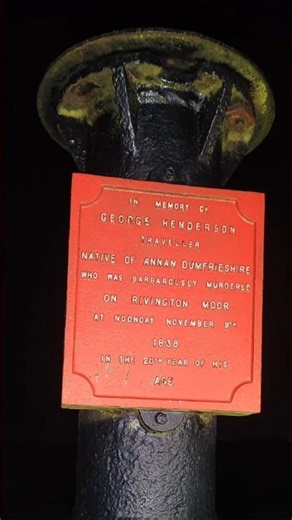 IN MEMORY OF
GEORGE HENDERSON
TRAVELLER
NATIVE OF ANNAN DUMFRIESHIRE
WHO WAS BARBAROUSLY MURDERED
ON RIVINGTON MOOR
AT NOONDAY NOVEMBER 9TH
1838
IN THE 20TH YEAR OF HIS
AGE